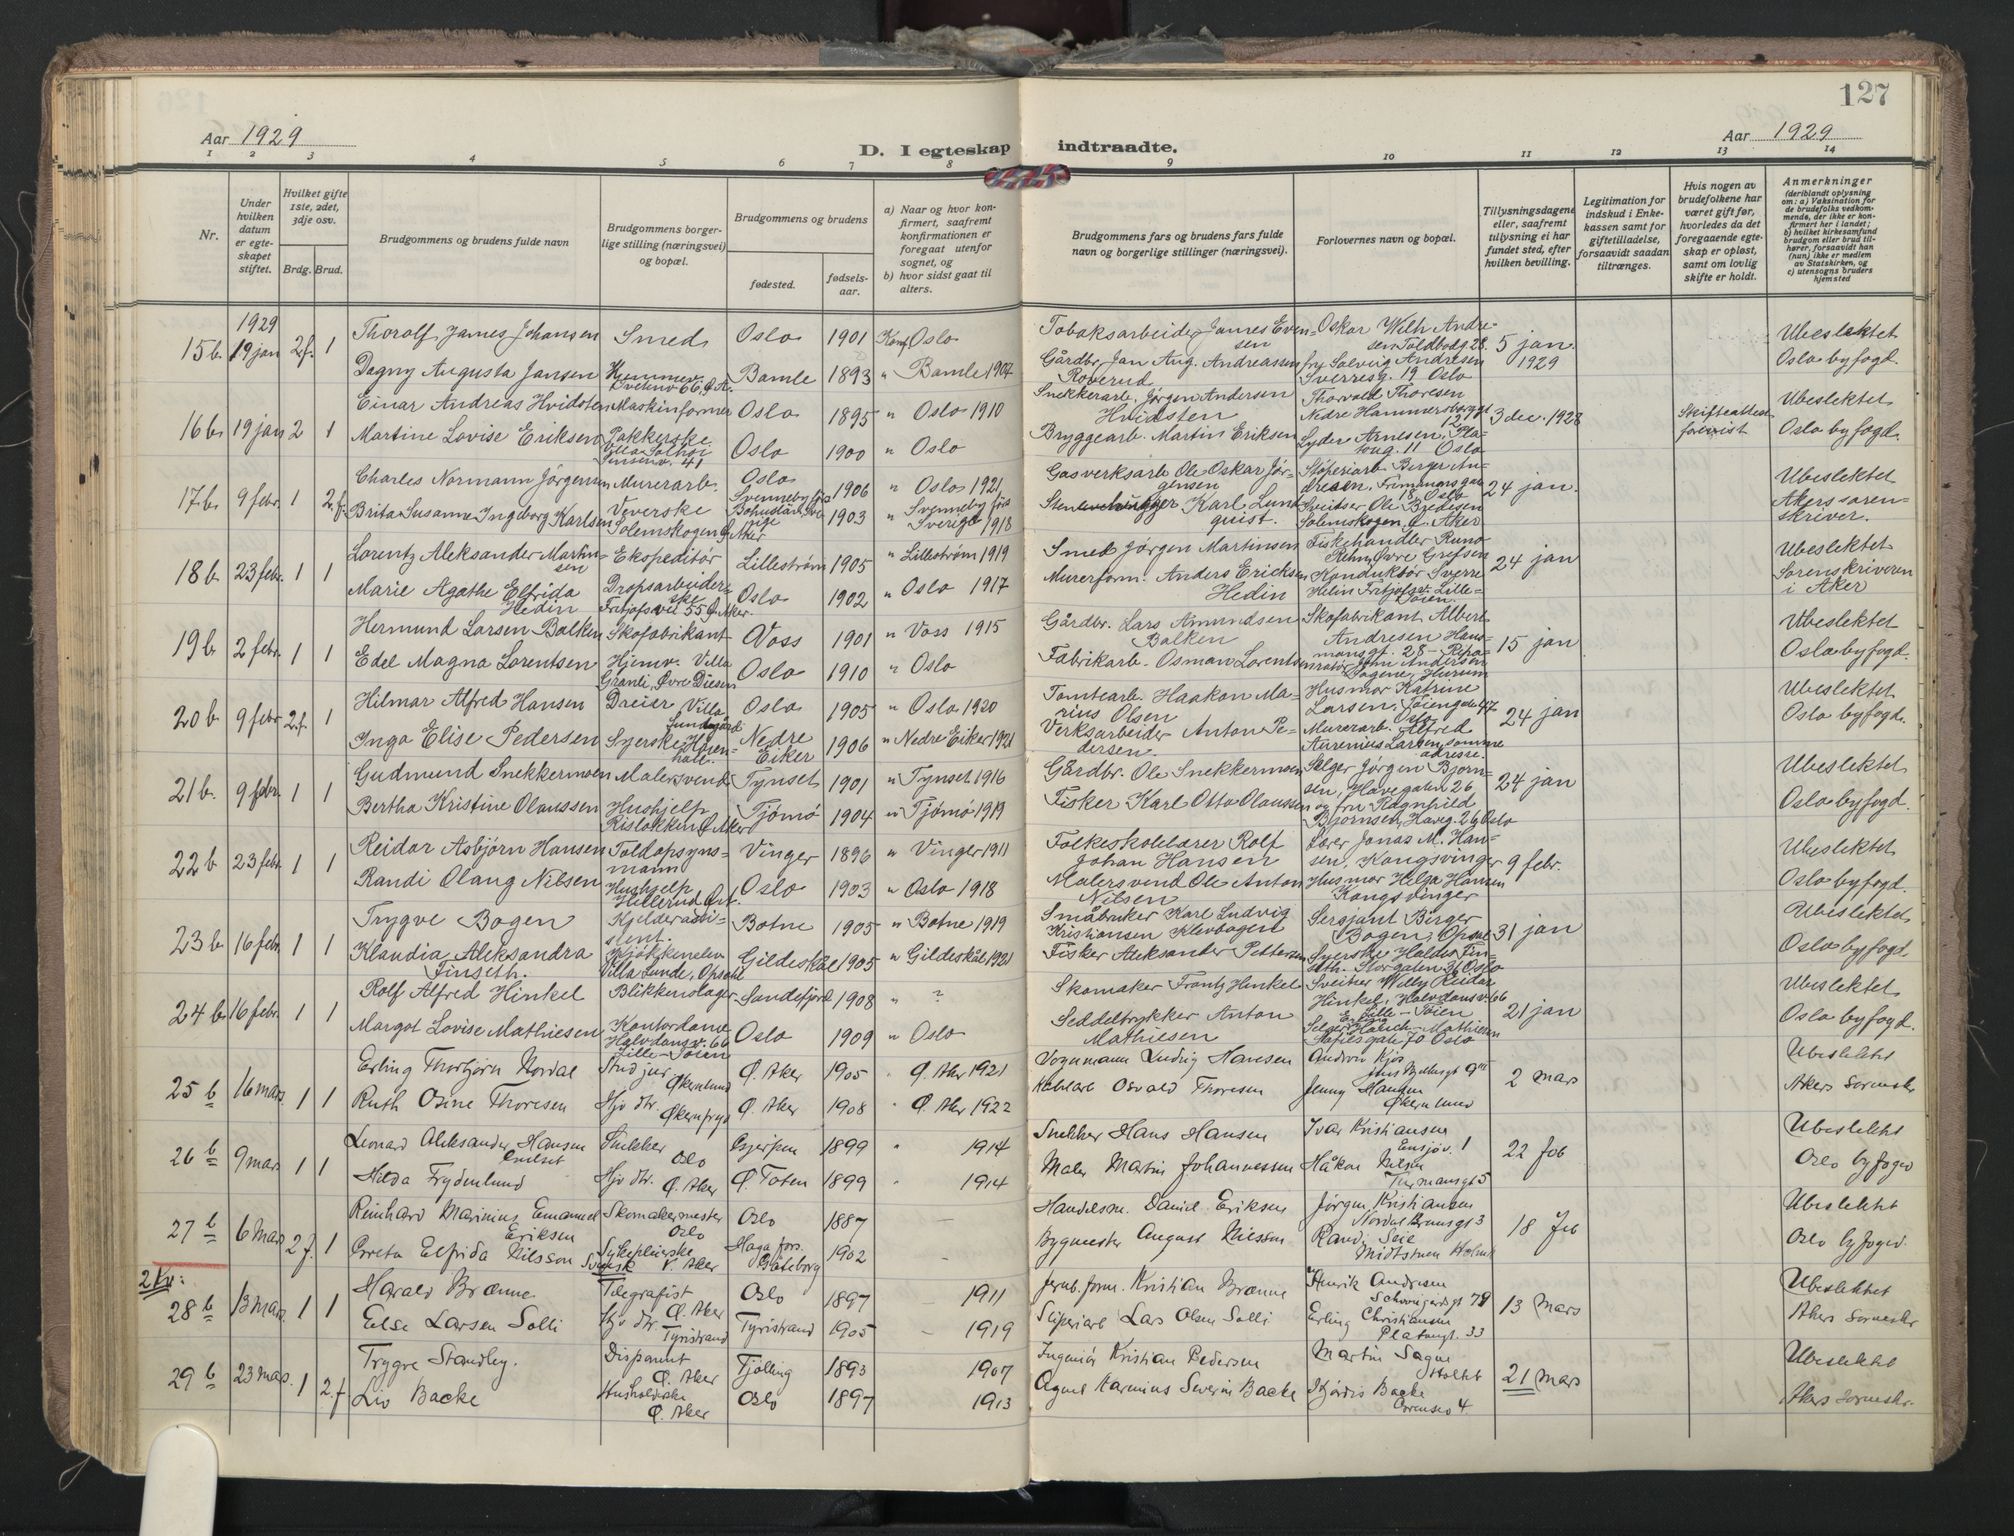 127
Aar 1929
D. I egteskap indtraadte.
Aar 1929
1 2 3 4 5 6 7 8 9 10 11 12 13 14
Nr.
Under hvilken datum er egteskapet stiftet.
Hvilket gifte 1ste, 2det, 3dje osv.
Brdg. Brud.
Brudgommens og brudens fulde navn
Brudgommens borgerlige stilling (næringsvei) og bopæl.
Brudgommens og brudens
fødested.
fødselsaar.
a) Naar og hvor konfirmert, saafremt konfirmationen er foregaat utenfor sognet, og
b) hvor sidst gaat til alters.
Brudgommens fars og brudens fars fulde navn og borgerlige stillinger (næringsvei).
Forlovernes navn og bopæl.
Tillysningsdagene eller, saafremt tillysning ei har fundet sted, efter hvilken bevilling.
Legitimation for indskud i Enkekassen samt for giftetilladelse, forsaavidt saadan tiltrænges.
Hvis nogen av brudefolkene har været gift før, hvorledes da det foregaaende egteskap er opløst, samt om lovlig skifte er holdt.
Anmerkninger
(deriblandt oplysning om: a) Vaksination for de brudefolks vedkommende, der ikke er konfirmert her i landet; b) hvilket kirkesamfund brudgom eller brud tilhører, forsaavidt han (hun) ikke er medlem av Statskirken, og c) utensogns bruders hjemsted
1929
15 b. 19 jan 2 f. 1 Thorolf James Johansen Smed Oslo 1901 Konf. Oslo Tobaksarbeider James Evensen Oskar Wilh. Andresen Toldbodg. 28. 5 jan. 1929 Ubeslektet
Dagny Augusta Jansen Ø. A. Bamle 1893 " Bamle 1907 Gårdbr. Jan Aug. Andreassen Roverud fru Solveig Andresen Sverresg. 19 Oslo Oslo byfogd
16 b. 19 jan 2 1 Einar Andreas Hvidsten Maskinformer Oslo 1895 " Oslo 1910 Snekkerarb. Jørgen Andersen Hvidsten Thorvald Thoresen Nedre Hammersborggt 12 3 dec. 1928 Skifteattest forevist Ubeslektet
Martine Lovise Eriksen Pakkerske Villa Solhøi 41 Oslo 1900 " Oslo Bryggearb. Martin Eriksen Lyder Arnesen, Platoug. 11 Oslo Oslo byfogd.
17 b. 9 febr. 1 2. f. Charles Normann Jörgensen Murerarb. Oslo 1906 " Oslo 1921 Gasverksarb Ole Oskar Jörgensen Støperiarb Birger Andresen, 18. Oslo 24 jan. Ubeslektet
Brita Susanne Ingeborg Karlsen Veverske Solemskogen Ø. Aker Svenneby Sverige 1903 " Svenneby Sverige 1918 Karl Lundquist. Sveitser Ole Bredesen Solemskogen, Ø. Aker Akers sorenskriver.
18 b. 23 febr. 1 1 Lorentz Aleksander Martinsen Ekspeditör Lillestrøm 1905 " Lillestrøm 1919 Smed Jörgen Martinsen Fiskehandler Øvre Grefsen 24 jan Ubeslektet
Marie Agathe Elfrida Hedin Dropsarbeiderske Fritjofsvei 55 Ø. Aker Oslo 1902 " Oslo 1917 Murerform. Anders Ericksen Hedin Konduktør Sverre Hedin Fritjofsv. Lille-Tøien. Sorenskriveren i Aker
19 b 2 febr. 1 1 Hermund Larsen Balken Skofabrikant Voss 1901 " Voss 1915 Gårdbr. Lars Amundsen Balken Skofabrikant Albert Andresen Hausmansgt. 28 15 jan Ubeslektet
Edel Magna Lorentsen Hjemv. Villa Granli, Øvre Disen Oslo 1910 " Oslo Fabrikarb. Osman Lorentsen John Andersen Oslo byfogd.
20 b 9 febr 2. f. 1 Hilmar Alfred Hansen Dreier Villa Oslo 1905 " Oslo 1920 Tomtearb. Haakon Marius Olsen Husmor Katrine Larsen, Tøiengaten 47 Oslo 24 jan Ubeslektet
Inga Elise Pedersen Syerske Nedre Eiker 1906 " Nedre Eiker 1921 Verksarbeider Anton Pedersen. Murerarb. Alfred Larsen, samme adresse. Oslo byfogd.
21 b. 9 febr. 1 1 Gudmund Snekkermoen Malersvend Tynset 1901 " Tynset 1916 Gårdbr. Ole Snekkermoen Selger Jörgen Bjørnsen, Havegaten 26 24 jan Ubeslektet
Bertha Kristine Olaussen Hushjelp Risløkken Ø. Aker Tjømø 1904 " Tjømø 1919 Fisker Karl Otto Olaussen og fru Ragnhild Bjørnsen, Haveg. 26 Oslo Oslo byfogd.
22 b 23 febr. 1 1 Reidar Asbjörn Hansen Toldopsynsmann Vinger 1896 " Vinger 1911 Folkeskolelærer Rolf Johan Hansen Lærer Jonas M. Hansen, Kongsvinger 9 febr. Ubeslektet
Randi Olaug Nilsen Hushjelp Hillerud Ø.A. Oslo 1903 " Oslo 1918 Malersvend Ole Anton Nilsen Husmor Helga Hansen Kongsvinger Oslo byfogd.
23 b 16 febr. 1 1 Trygve Bogen Gjelderassistent. Botne 1905 " Botne 1919 Småbruker Karl Ludvig Kristiansen Klevbogen Sergjant Birger Bogen, Opsal 31 jan Ubeslektet
Klaudia Aleksandra Finseth. Kjøkkenelev Villa Lunde, Opsal Gildeskål 1905 " Gildeskål 1921 Fisker Aleksander Pettersen Syerske Haldis Finseth. Storgaten 36 Oslo Oslo byfogd.
24 b 16 febr. 1 1 Rolf Alfred Hinkel Blikkenslager Sandefjord 1908 " ? Skomaker Frantz Hinkel Sveitser Willy Reidar Hinkel, Halvdansv. 66 Lille-Tøien 21 jan Ubeslektet
Margot Lovise Mathiesen Kontordame Halvdansv. 66 Lille-Tøien Oslo 1909 " Oslo Seddeltrykker Anton Mathiesen Selger Erling Hauch-Mathiesen Sofiesgate 70 Oslo Oslo byfogd.
25 b 16 mars. 1 1 Erling Thorbjörn Nordal Økernlund Ø. Aker 1905 " Ø. Aker 1921 Vognmann Ludvig Hansen 2 mars Ubeslektet
Ruth Osine Thoresen Hjv dtr. Ø. Aker 1908 " Ø. Aker 1922 Osvald Thoresen Jenny Hansen Økernlund Akers Sorenskr
26 b 9 mars 1 1 Leonard Aleksander Hansen Snekker Oslo Gjerpen 1899 " 1914 Snekker Hans Hansen Ivar Kristiansen Ensjøv. 1 22 feb Ubeslektet
Hilda Frydenlund Hjv dtr. Ø. Aker Ø. Toten 1899 " 1914 Maler Martin Johannessen Håkon Nilsen 5 Oslo byfogd
27 b 6 mars 2 f. 1 Reinhard Marinius Emanuel Eriksen Skomakermester Oslo Oslo 1887 – Handelsm. Daniel Eriksen Jørgen Kristiansen Nordal Brunsgt 3 18 feb Ubeslektet
Greta Elfrida Nilsson Sykepleierske Svensk V. Aker Haga fors. Göteborg 1902 Bygmester August Nilsson Randi Seie Midtstuen Oslo byfogd.
2 Kv:
28 b 13 mars. 1 1 Harald Brænne Telegrafist Ø. Aker Oslo 1897 – 1911 Jernb. form. Kristian Brænne Henrik Andresen Schweigårdsgt 79 13 mars Ubeslektet
Else Larsen Solli Hjv dtr. Tyristrand Tyristrand 1905 – 1919 Sliperiarb Lars Olsen Solli Erling Christiansen Platousgt. 33 Akers Sorenskr
29 b 23 mars. 1 2. f Trygve Standby. Disponent Ø. Aker Tjølling 1893 1907 Ingeniør Kristian Pedersen Martin Sagen 21 mars Ubeslektet
Liv Backe Ø. Aker Oslo 1897 1913 Agent Severin Backe Hjørdis Backe 4 Akers Sorenskr.